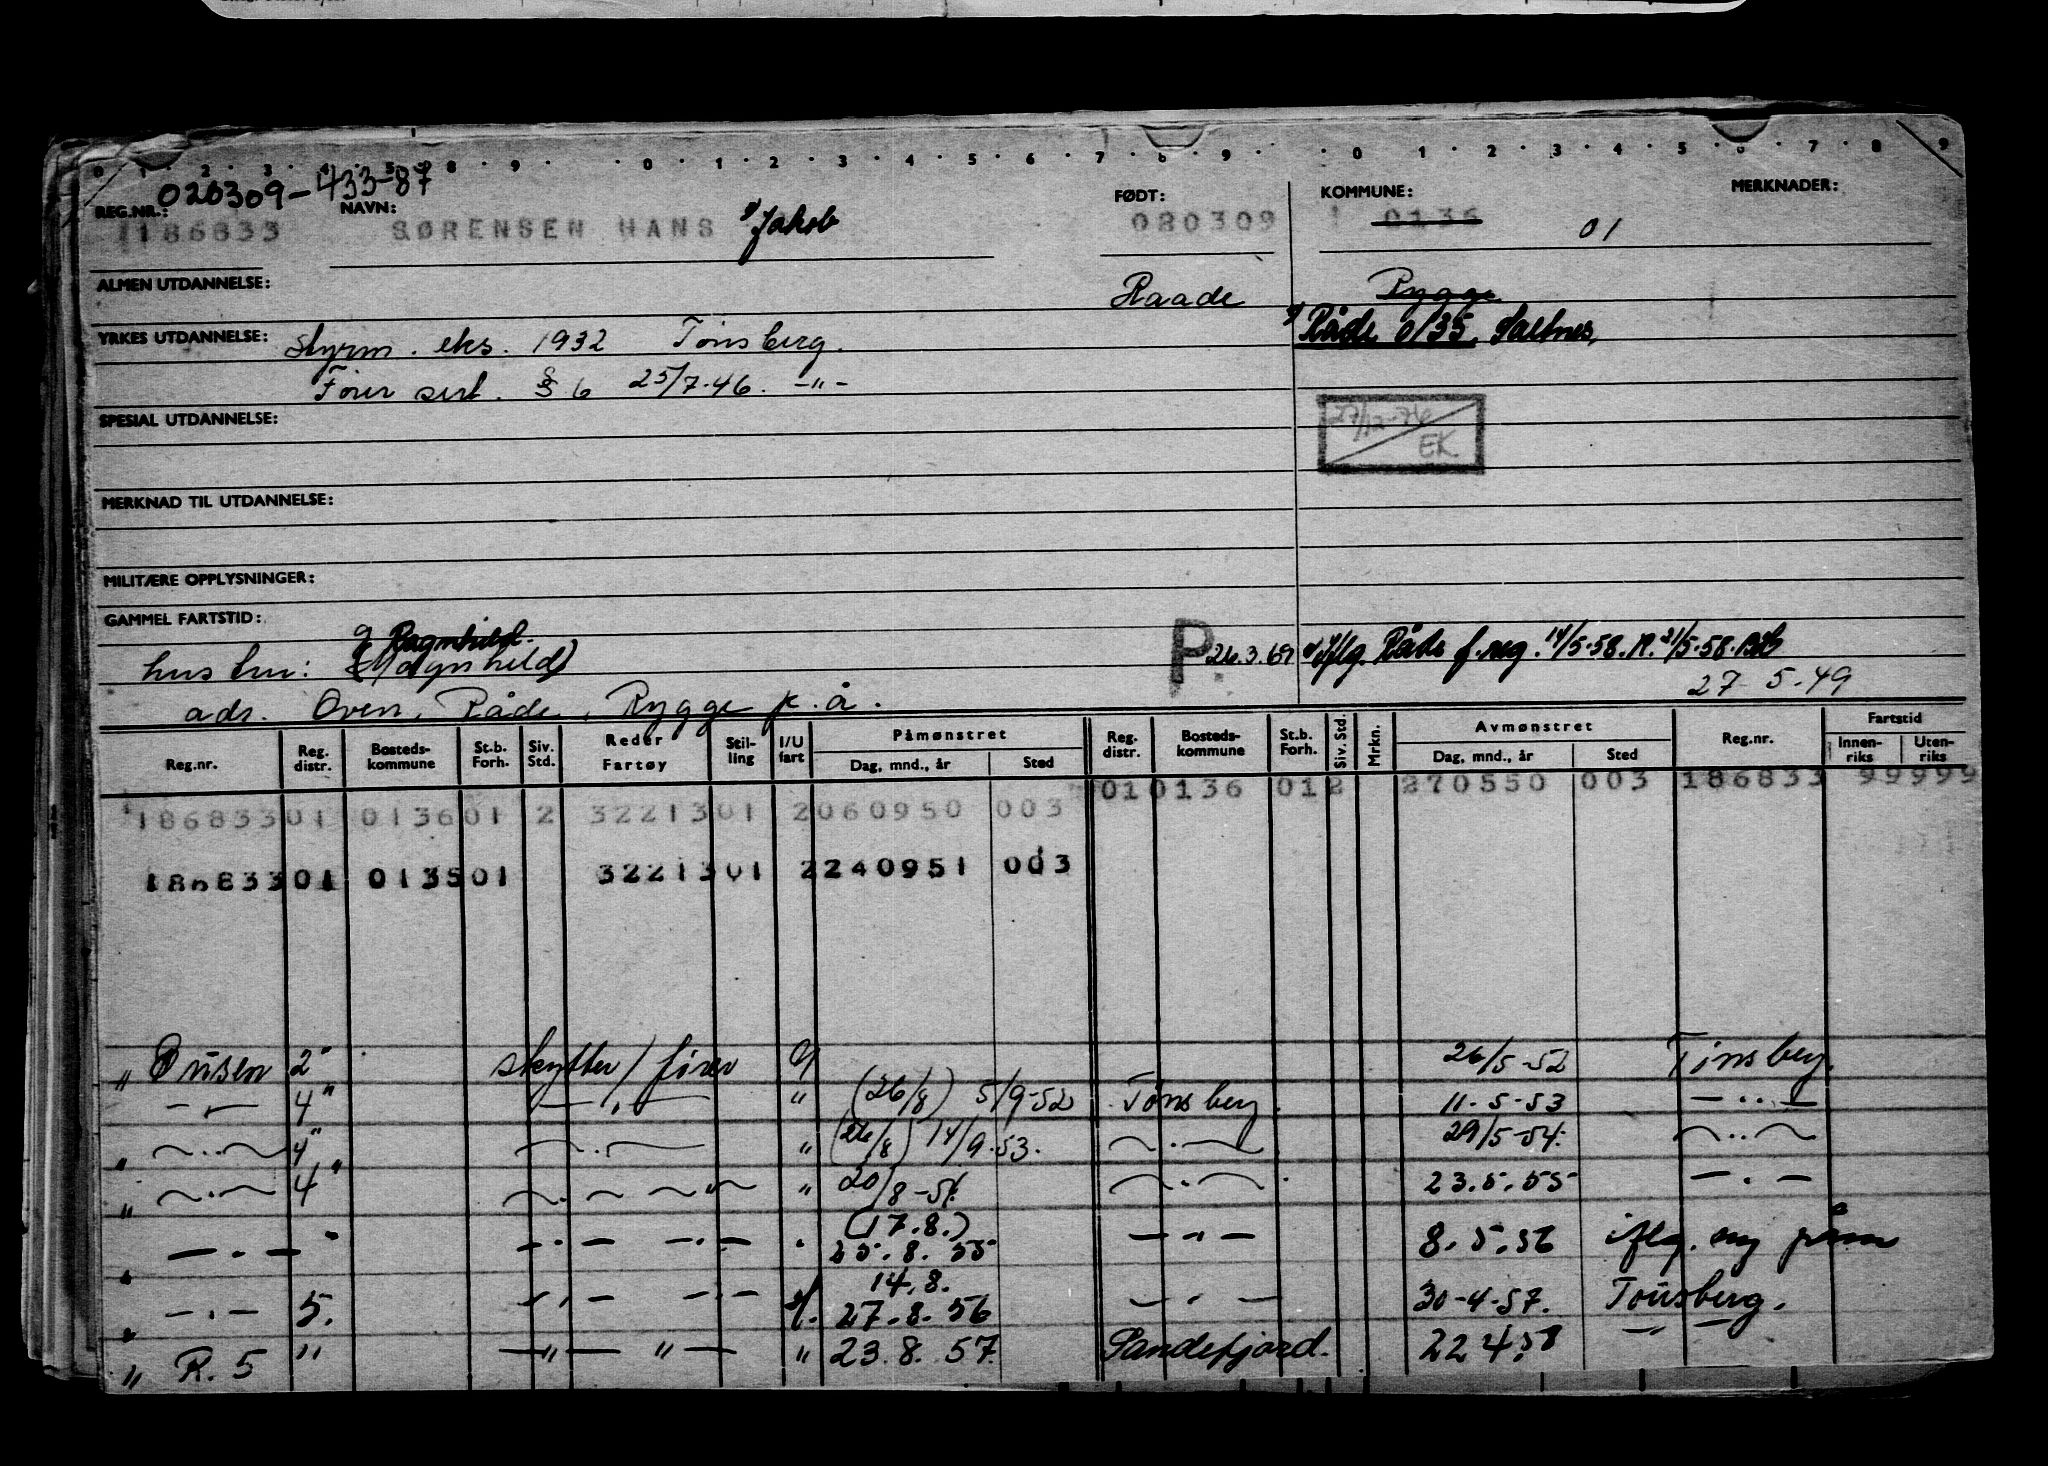 0 1 2 3 4 5 6 7 8 9 0 1 2 3 4 5 6 7 8 9 0 1 2 3 4 5 6 7 8 9
020309-433-87
REG.NR.: NAVN: FØDT: KOMMUNE: MERKNADER:
186833 SØRENSEN HANS Jakob 080309 0136 01
ALMEN UTDANNELSE: Raade Rygge
YRKES UTDANNELSE: Styrm. eks. 1932 Tønsberg. Råde 0135, Saltnes,
Fører sert. § 6 25/7-46. -"-
SPESIAL UTDANNELSE: 27/12-76 EK
MERKNAD TIL UTDANNELSE:
MILITÆRE OPPLYSNINGER:
GAMMEL FARTSTID:
Ragnhild.
hustru: (Magnhild) P 26.3.69 iflg. Råde f.reg. 14/5-58. R. 21/5-58.
27-5-49
adr. Oven, Råde, Rygge p.å.
Reg.nr. Reg. distr. Bosteds-kommune St.b. Forh. Siv. Std. Reder Fartøy Stil-ling I/U fart Påmønstret Dag, mnd., år Sted Reg. distr. Bosteds-kommune St.b. Forh. Siv. Std. Mrkn. Avmønstret Dag, mnd., år Sted Reg.nr. Fartstid Innen-riks Uten-riks
010136 012 270550 003 186833 99999
18683301 013601 2 3221301 2060950 003
18683301 013501 3221301 2240951 003
" Ørnsen 2" skytter/fører 26/5-52 Tønsberg.
-"- 4" -"- " (26/8) 5/9-52 Tønsberg. 11-5-53 -"-
" -"- 4" -"- " (26/8) 14/9-53. -"- 29/5-54. -"-
" -"- 4" -"- -"- " 20/8-54. -"- 23.5.55 -"-
(17.8.)
-"- " -"- -"- " 25.8.55 -"- 8.5.56 iflg. ny påm
14.8.
-"- 5. -"- -"- 27.8.56 -"- 30-4-57. Tønsberg.
" R. 5 " -"- " - " 23.8.57. Sandefjord. 22458 -"-